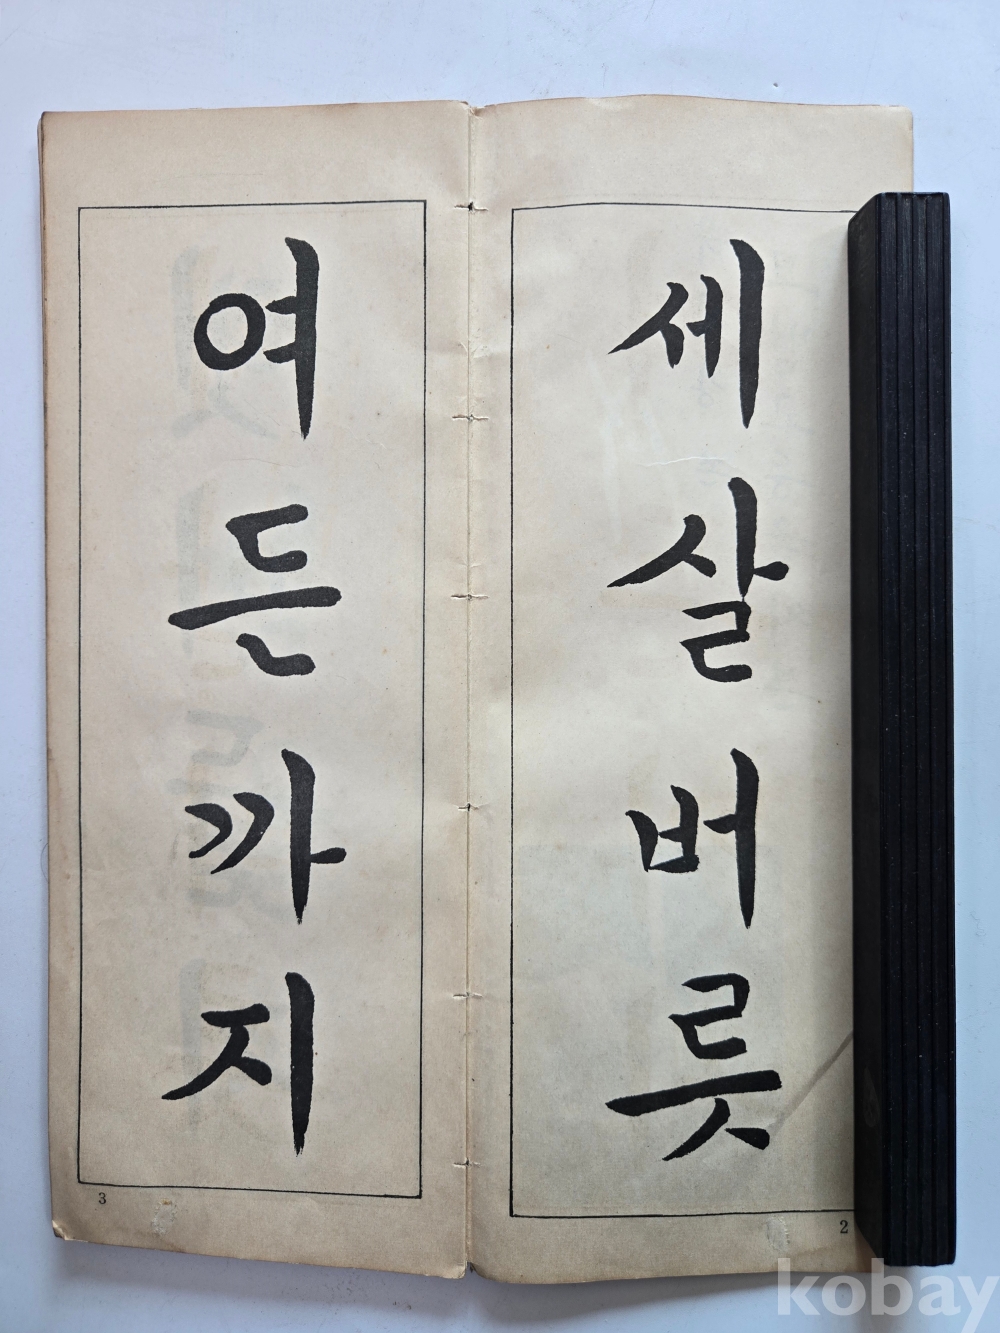 세살버릇
2
여든까지
3
kobay